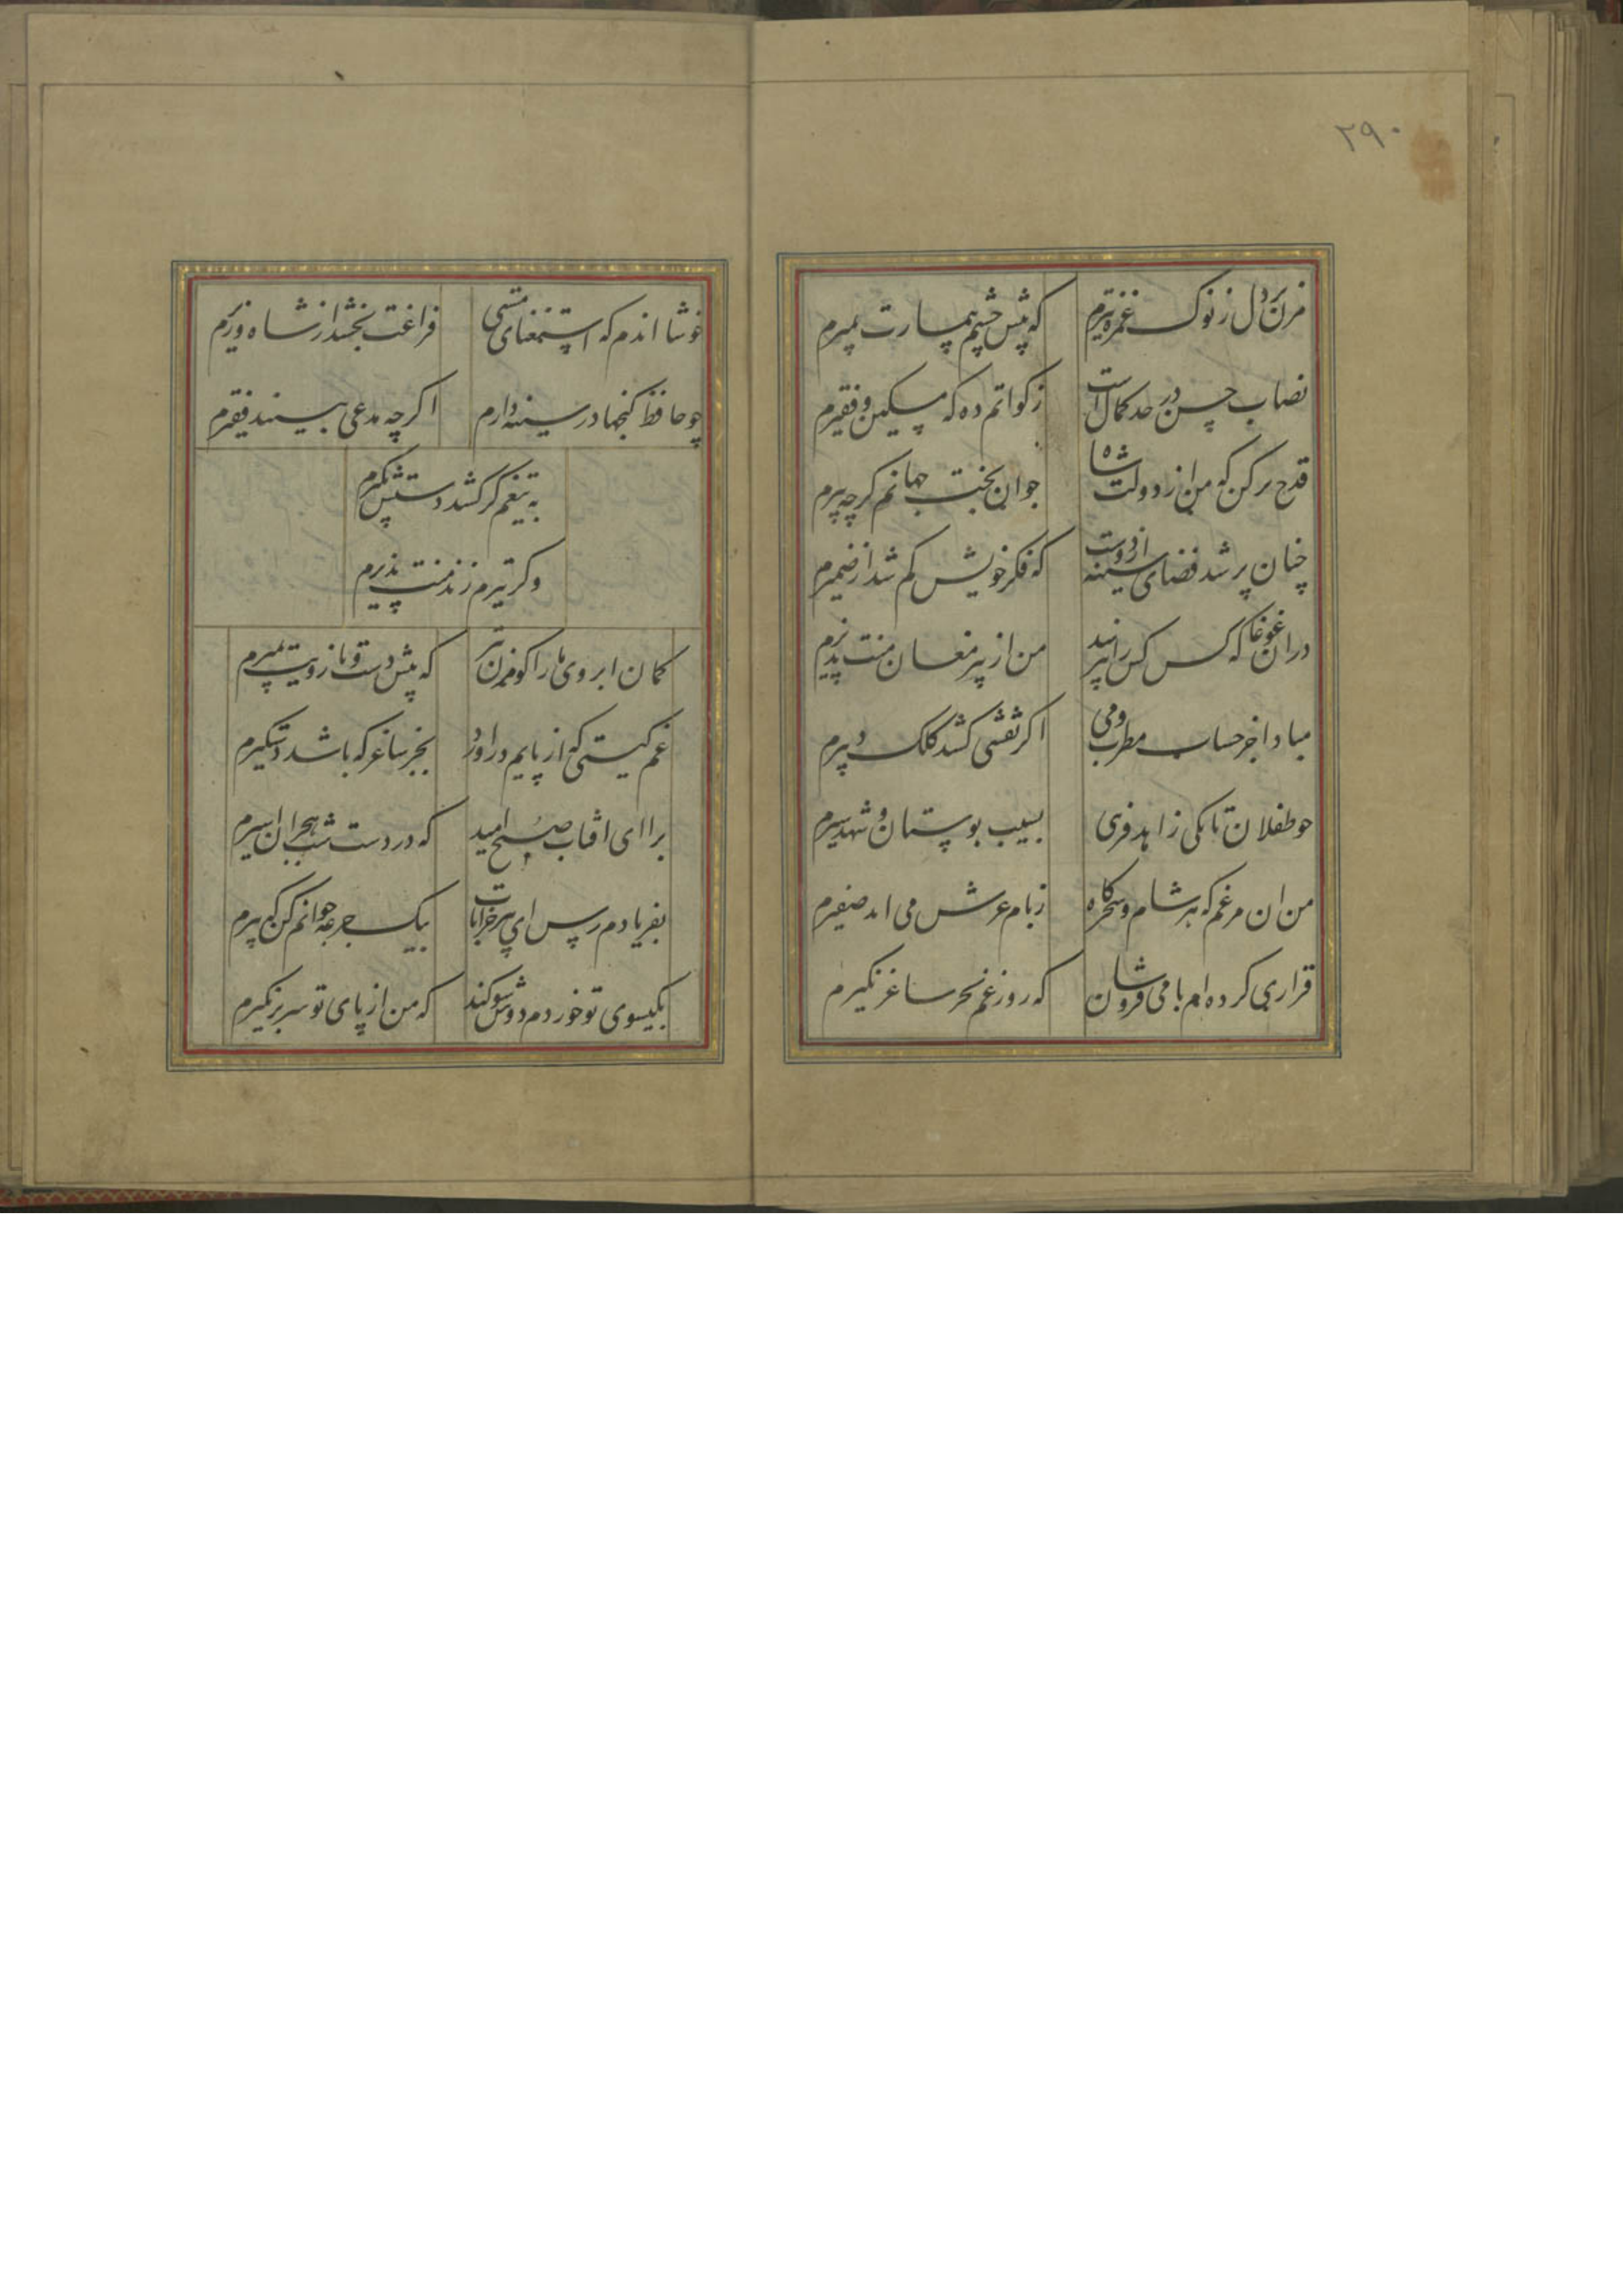 ۲۹۰
مزن بر دل ز نوک غمزه تیرم که پیش چشم بیمارت بمیرم
نصاب حسن در حد کمال است زکواتم ده که مسکین و فقیرم
قدح پر کن که من از دولت شاه جوان بخت جهانم کرچه پیرم
چنان پر شد فضای سینه از دوست که فکر خویش کم شد از ضمیرم
دران غوغا که کس کس را نپرسد من از پیر مغان منت پذیرم
مبادا جز حساب مطرب و می اکر نقشی کشد کلک دبیرم
چو طفلان تا کی زاهد فریبی بسیب بوستان و شهد و شیرم
من ان مرغم که هر شام و سحرکاه ز بام عرش می اید صفیرم
قراری کرده ام با می فروشان که روز غم بجز ساغر نکیرم
خوشا اندم که استغنای مستی فراغت بخشد از شاه و وزیرم
چو حافظ کنجها در سینه دارم اکرچه مدعی بیند فقیرم
به تیغم کر کشد دستش نکیرم
وکر تیرم زند منت پذیرم
کمان ابروی ما را کو مزن تیر که پیش دست و بازویت بمیرم
غم کیتی کر از پایم دراورد بجز ساغر که باشد دستکیرم
برا ای افتاب صبح امید که در دست شب هجران اسیرم
بفریادم رس ای پیر خرابات بیک جرعه جوانم کن که پیرم
بکیسوی تو خوردم دوش سوکند که من از پای تو سر بر نکیرم